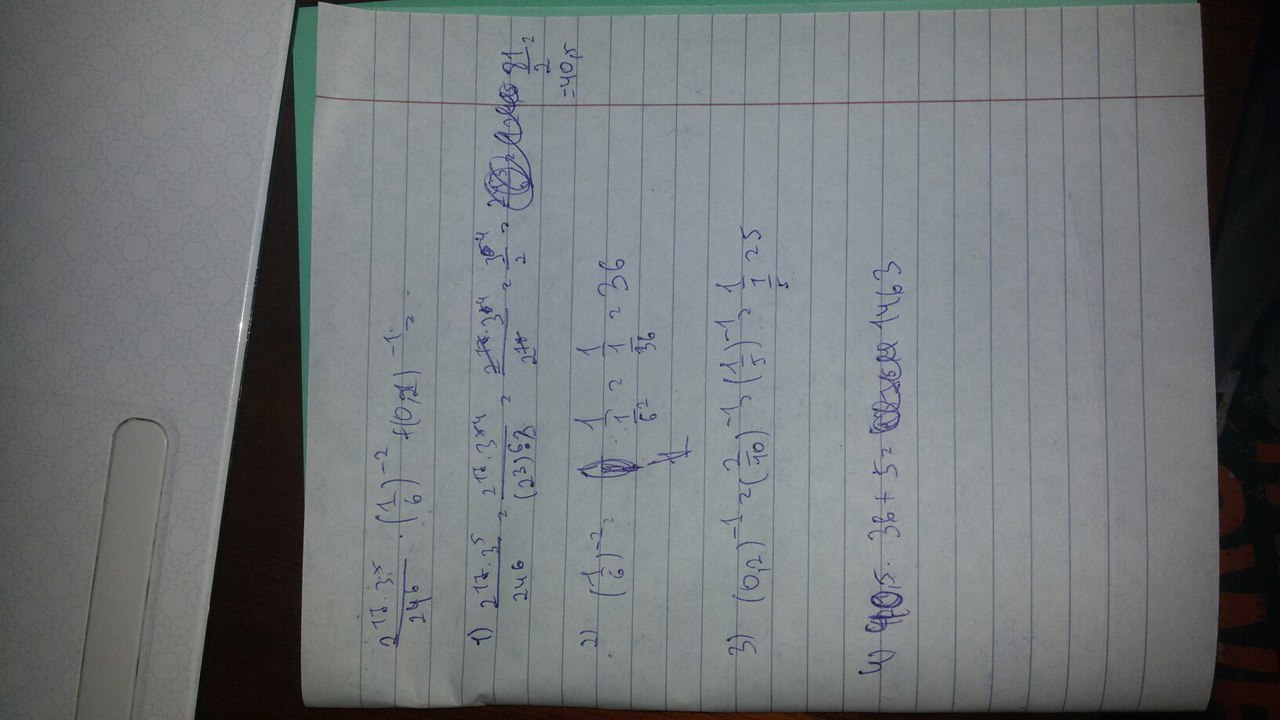 2¹⁷·3⁵/24⁶ · (1/6)⁻² + (0,2)⁻¹ =
1) 2¹⁷·3⁵/24⁶ = 2¹⁷·3⁴/(2³)⁶ = 2¹⁷·3⁴/2¹⁸ = 3⁴/2 = 81/2 =
=40,5
2) (1/6)⁻² = 1/(1/6²) = 1/(1/36) = 36
3) (0,2)⁻¹ = (2/10)⁻¹ = (1/5)⁻¹ = 1/(1/5) = 5
4) 40,5 · 36 + 5 = 1463